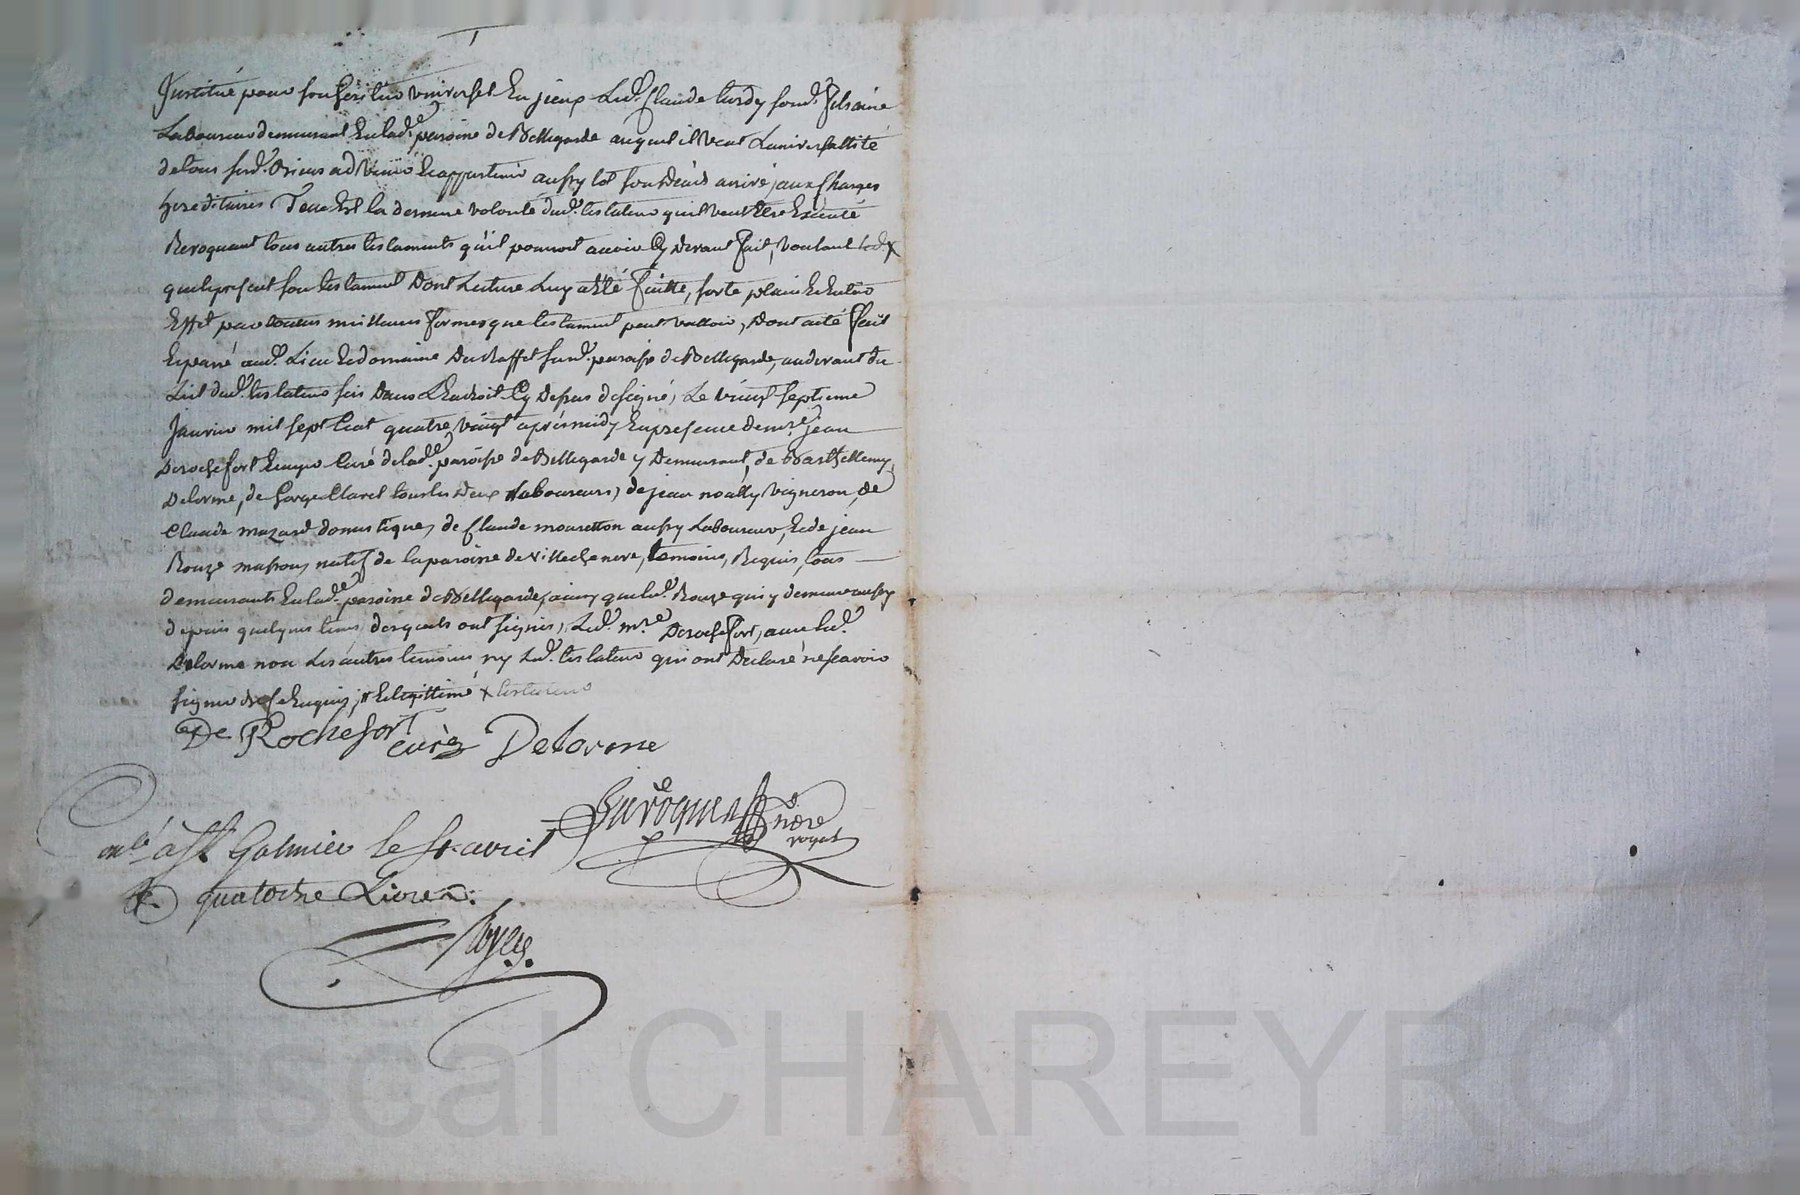 Institué pour son heritier universel En yceux Led. Claude turdy sond. fils ainé
Laboureur demeurant En lad.e paroisse de Bellegarde auquel il veut Luniversallité
de tous sesd. Biens advenir & appartenir aussy tot son déceds arrivé, aux Charges
hereditaires Telle Est la derniere volonté dud. testateur quil veut Etre Exécuté
Revoquant tous autres testaments qu'il pourroit avoir Cy Devant fait, voulant led. x
que le present son testament Dont Lecture Luy a Eté faitte, sorte plain & Entier
Effet par toutes meilleures formes que testament peut valloir, Dont acte fait
Et passé aud. Lieu & domaine Du Raffet susd. paroisse de Bellegarde, audevant du
Lit dud. testateur sis Dans L'Endroit Cy Dessus designé, Le vingt septieme
Janvier mil sept Cent quatre vingt aprés midy En presence de mre. jean
Derochefort Ecuyer Curé de lad.e paroisse de Bellegarde y Demeurant, de Barthellemy
Delorme, de George Claret tous les Deux Laboureurs, de jean noally vigneron, de
Claude mazard domestique, de Claude mouretton aussy Laboureur, & de jean
Rouze masson, natif de la paroisse de villecheneve, temoins, Requis, tous
demeurants En lad.e paroisse de Bellegarde, ainsy que led. Rouze qui y demeure aussy
depuis quelques tems desquels ont signés, Led. mre. Derochefort, avec led.
Delorme non Les autres temoins ny Led. testateur qui ont Declaré ne sçavoir
signer de ce Enquis, & Legittimé x testateur
De Rochefort curé Delorme
nore royal
à St Galmier le 8 avril
quatorze Livres.